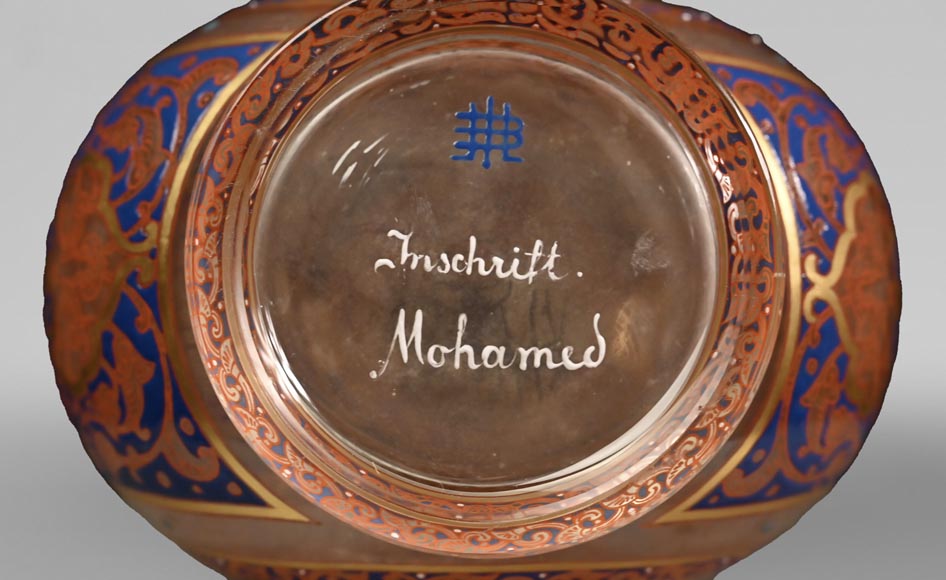 Inschrift.
Mohamed